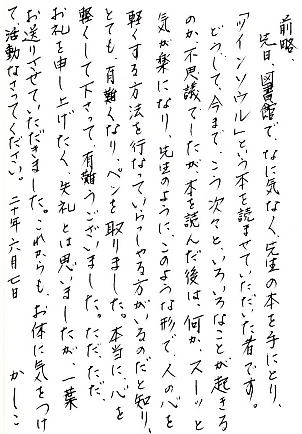 前略
先日、図書館で、なに気なく、先生の本を手にとり、
「ツインソウル」という本を読ませていただいた者です。
どうして、今まで、こう次々と、いろいろなことが起きる
のか、不思議でしたが、本を読んだ後は、何か、スーッと
気が楽になり、先生のように、このような形で、人の心を
軽くする方法を行なっていらっしゃる方がいるのだと知り、
とても、有難くなり、ペンを取りました。本当に、心を
軽くして下さって、有難うございました。ただただ、
お礼を申し上げたく、失礼とは思いましたが、一葉
お送りさせていただきました。これからも、お体に気をつけ
て、活動なさってください。二十年六月七日　かしこ